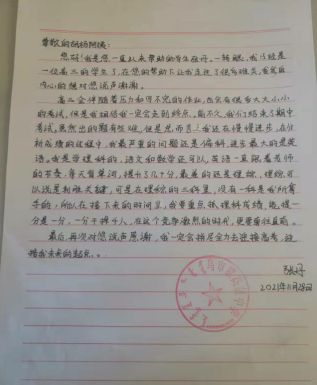 尊敬的胡杨阿姨:
您好!我是您一直以来帮助的学生张婷,一转眼,我已经是
一位高三的学生了,在您的帮助下让我走过了很多难关,我发自
内心的想对您说声谢谢。
高三会伴随着压力和写不完的作业,也会有很多大大小小
的考试,但是我相信我一定会走到终点,前不久,我们结束了期中
考试,虽然出的题有些难,但是总而言之我还在慢慢进步,在分
析成绩的过程中,我最严重的问题还是偏科,进步最大的是英
语,我是学理科的,语文和数学还可以,英语一直跟着老师
的节奏,每天背单词,提升了几十分,最差的还是理综,理综可
以说是制胜关键,可是在理综的三科里,没有一科是我所擅
长的,所以在接下来的时间里,我要重点抓理科成绩,能提一
分是一分,一分干掉千人,在这个竞争激烈的时代,更要勇往直前。
最后,再次对您说声感谢,我一定会拼尽全力去迎接高考,迎
接我未来的起点。
张婷
2021年11月28日